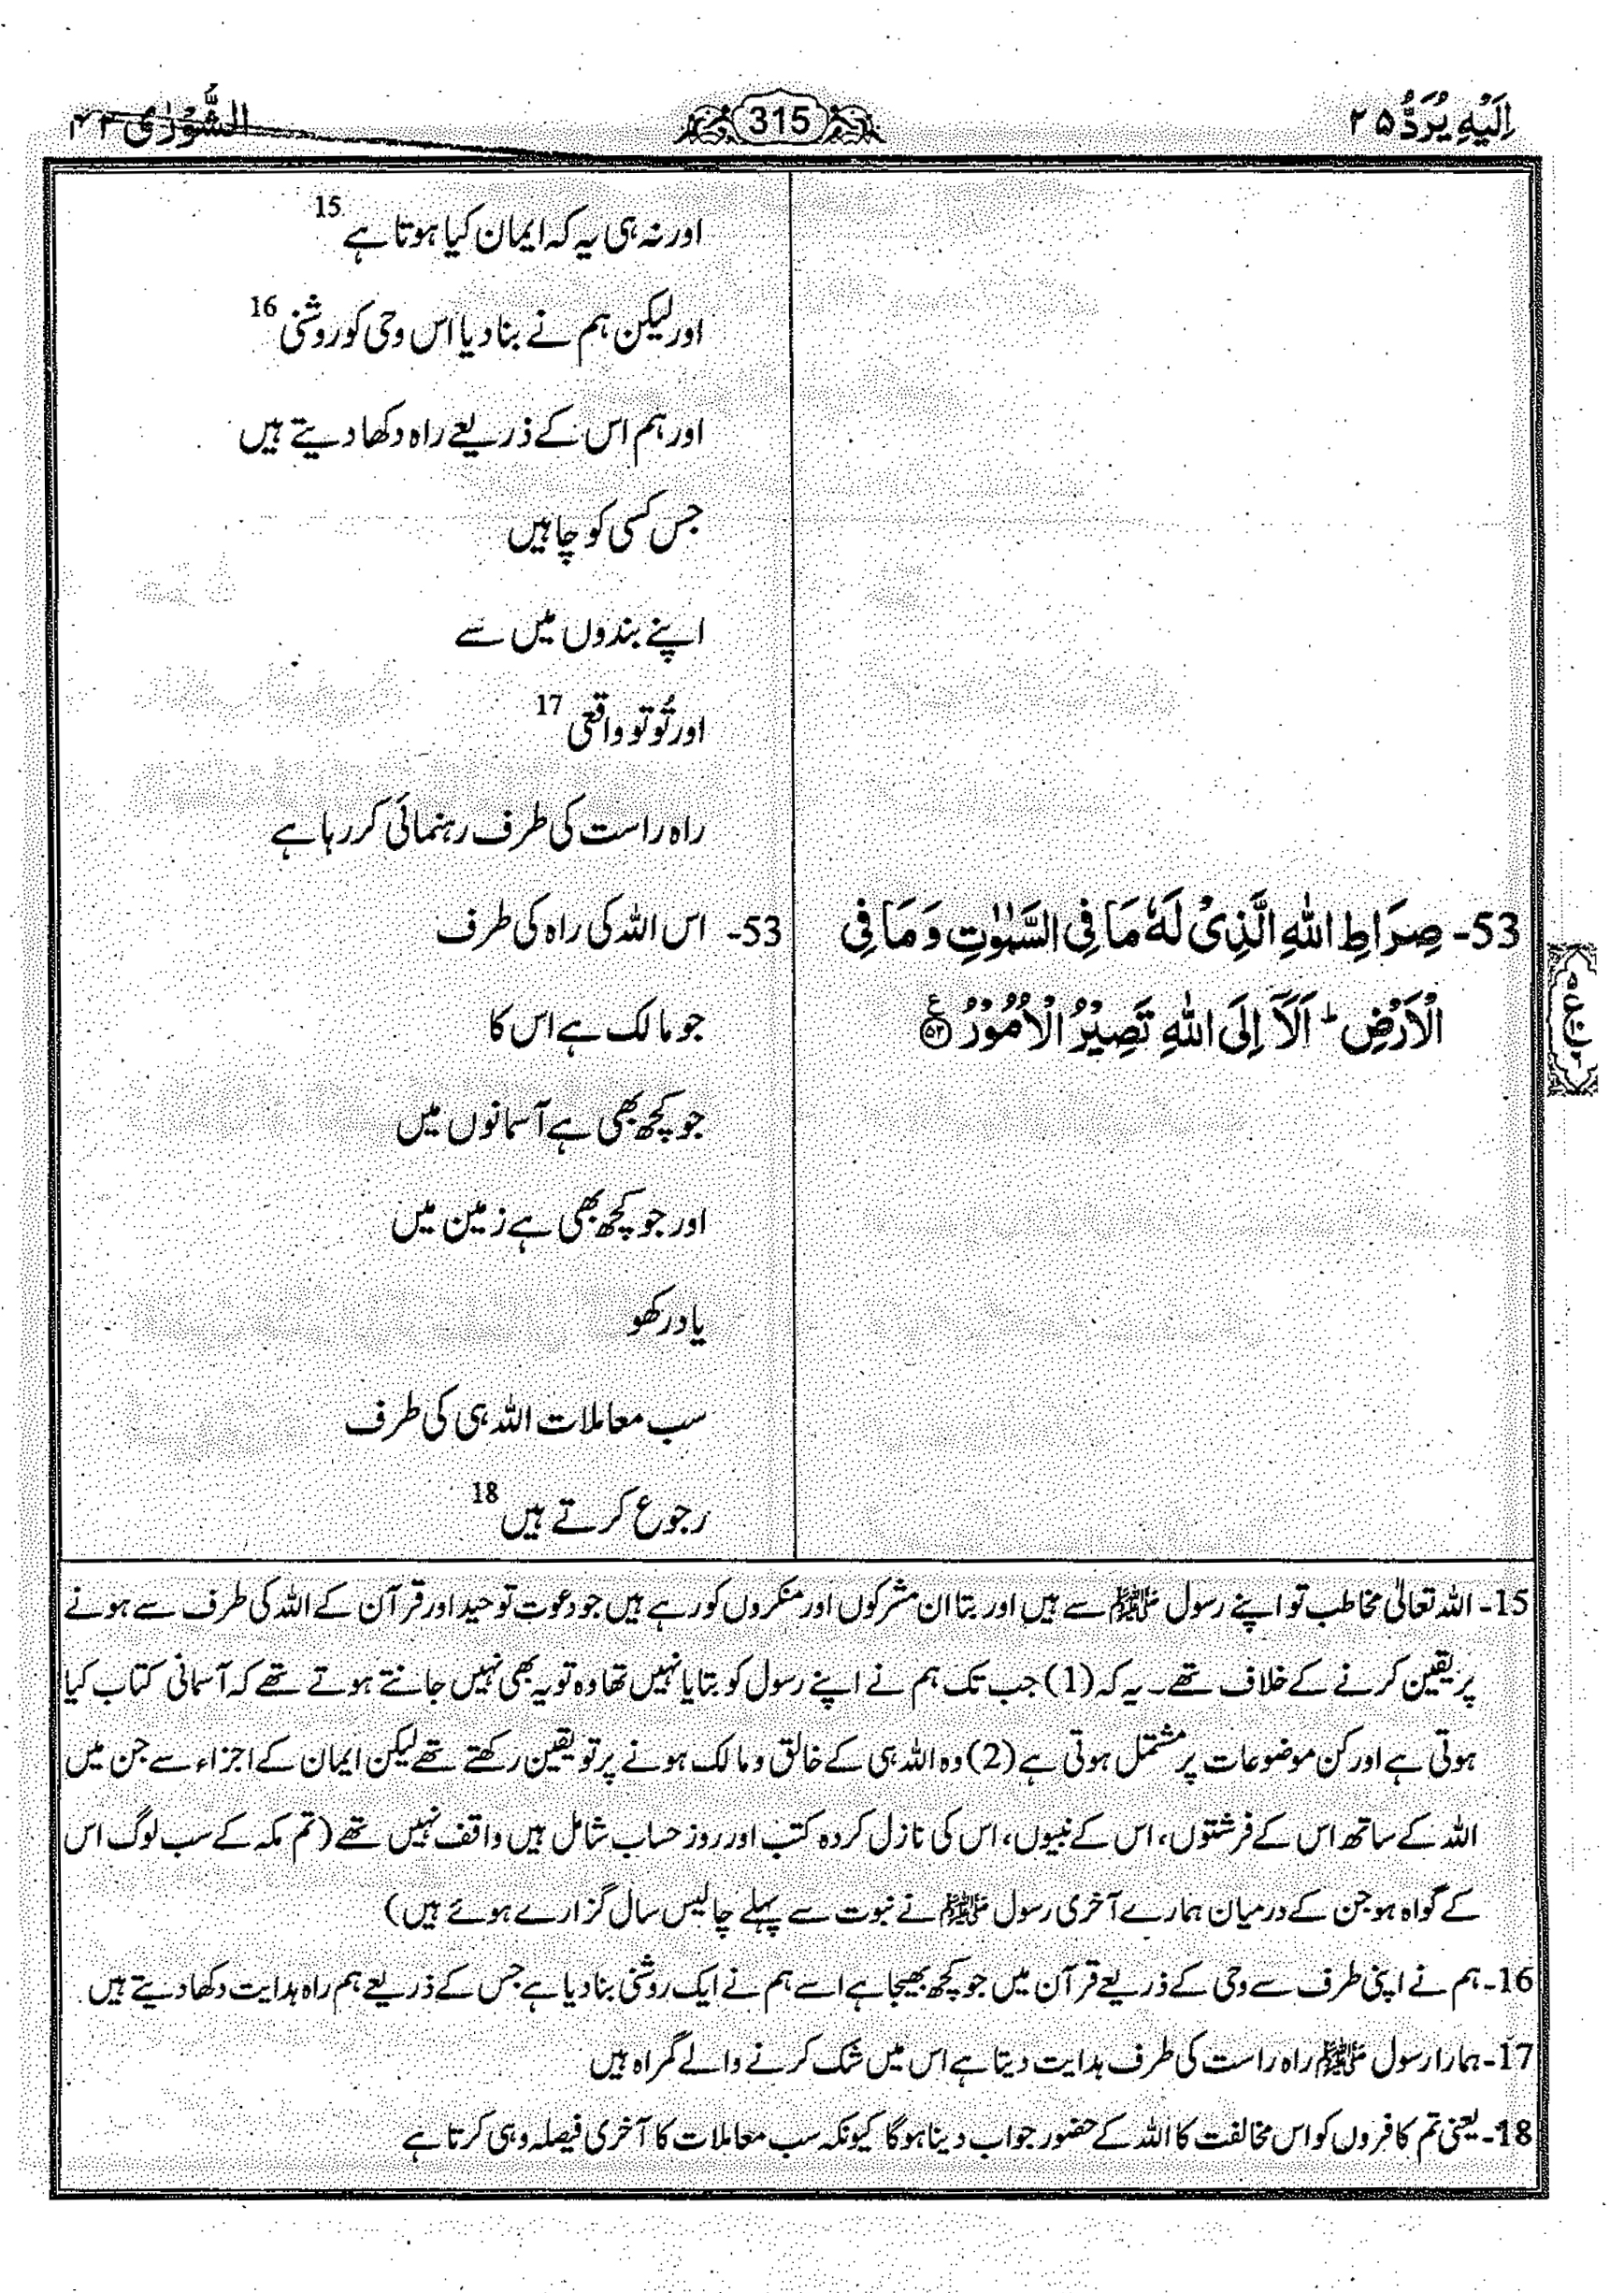 اِلَيْهِ يُرَدُّ ۲۵
315
الشُّوْرٰى ۴۲
53- صِرَاطِ اللّٰهِ الَّذِىْ لَهٗ مَا فِى السَّمٰوٰتِ وَ مَا فِى
الْاَرْضِ ؕ اَلَاۤ اِلَى اللّٰهِ تَصِيْرُ الْاُمُوْرُ ۠ ﴿۵۳﴾
اور نہ ہی یہ کہ ایمان کیا ہوتا ہے 15
اور لیکن ہم نے بنا دیا اس وحی کو روشنی 16
اور ہم اس کے ذریعے راہ دکھا دیتے ہیں
جس کسی کو چاہیں
اپنے بندوں میں سے
اور تُو تو واقعی 17
راہ راست کی طرف رہنمائی کر رہا ہے
53- اس اللہ کی راہ کی طرف
جو مالک ہے اس کا
جو کچھ بھی ہے آسمانوں میں
اور جو کچھ بھی ہے زمین میں
یاد رکھو
سب معاملات اللہ ہی کی طرف
رجوع کرتے ہیں 18
15- اللہ تعالیٰ مخاطب تو اپنے رسول ﷺ سے ہیں اور بتا ان مشرکوں اور منکروں کو رہے ہیں جو دعوت توحید اور قرآن کے اللہ کی طرف سے ہونے
پر یقین کرنے کے خلاف تھے۔ یہ کہ (1) جب تک ہم نے اپنے رسول کو بتایا نہیں تھا وہ تو یہ بھی نہیں جانتے ہوتے تھے کہ آسمانی کتاب کیا
ہوتی ہے اور کن موضوعات پر مشتمل ہوتی ہے (2) وہ اللہ ہی کے خالق و مالک ہونے پر تو یقین رکھتے تھے لیکن ایمان کے اجزاء سے جن میں
اللہ کے ساتھ اس کے فرشتوں، اس کے نبیوں، اس کی نازل کردہ کتب اور روز حساب شامل ہیں واقف نہیں تھے (تم مکہ کے سب لوگ اس
کے گواہ ہو جن کے درمیان ہمارے آخری رسول ﷺ نے نبوت سے پہلے چالیس سال گزارے ہوئے ہیں)
16- ہم نے اپنی طرف سے وحی کے ذریعے قرآن میں جو کچھ بھیجا ہے اسے ہم نے ایک روشنی بنا دیا ہے جس کے ذریعے ہم راہ ہدایت دکھا دیتے ہیں
17- ہمارا رسول ﷺ راہ راست کی طرف ہدایت دیتا ہے اس میں شک کرنے والے گمراہ ہیں
18- یعنی تم کافروں کو اس مخالفت کا اللہ کے حضور جواب دینا ہو گا کیونکہ سب معاملات کا آخری فیصلہ وہی کرتا ہے